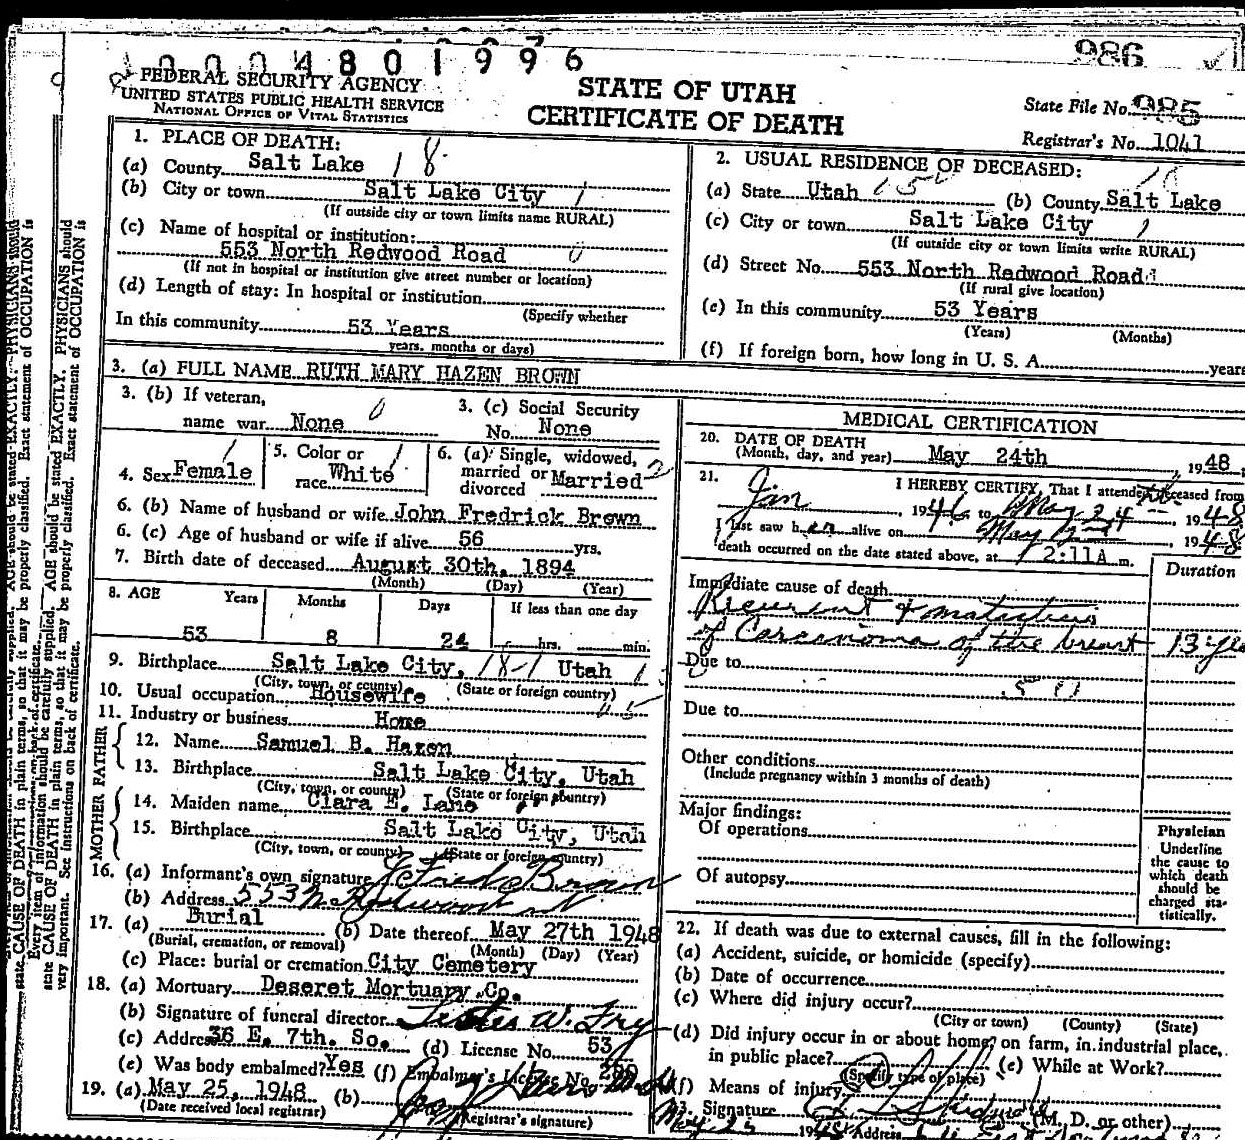 0004801996
986
FEDERAL SECURITY AGENCY
UNITED STATES PUBLIC HEALTH SERVICE
NATIONAL OFFICE OF VITAL STATISTICS
STATE OF UTAH
CERTIFICATE OF DEATH
State File No. 985
Registrar's No. 1041
1. PLACE OF DEATH:
(a) County Salt Lake 18
(b) City or town Salt Lake City 1
(If outside city or town limits name RURAL)
(c) Name of hospital or institution:
553 North Redwood Road 0
(If not in hospital or institution give street number or location)
(d) Length of stay: In hospital or institution
(Specify whether
In this community 53 Years
years, months or days)
2. USUAL RESIDENCE OF DECEASED:
(a) State Utah (b) County Salt Lake
(c) City or town Salt Lake City 1
(If outside city or town limits write RURAL)
(d) Street No. 553 North Redwood Road
(If rural give location)
(e) In this community 53 Years
(Years) (Months)
(f) If foreign born, how long in U. S. A. years
3. (a) FULL NAME RUTH MARY HAZEN BROWN
3. (b) If veteran,
name war None 0
3. (c) Social Security
No. None
4. Sex Female 1
5. Color or
race White 1
6. (a) Single, widowed,
married or
divorced Married 2
6. (b) Name of husband or wife John Fredrick Brown
6. (c) Age of husband or wife if alive 56 yrs.
7. Birth date of deceased August 30th, 1894
(Month) (Day) (Year)
8. AGE Years Months Days If less than one day
53 8 24 hrs. min.
9. Birthplace Salt Lake City, 18-1 Utah 1
(City, town, or county) (State or foreign country)
10. Usual occupation Housewife
11. Industry or business Home
FATHER
12. Name Samuel B. Hazen
13. Birthplace Salt Lake City, Utah
(City, town, or county) (State or foreign country)
MOTHER
14. Maiden name Clara E. Lane
15. Birthplace Salt Lake City, Utah
(City, town, or county) (State or foreign country)
16. (a) Informant's own signature J Fred Brown
(b) Address 553 N Redwood
17. (a) Burial (b) Date thereof May 27th 1948
(Burial, cremation, or removal) (Month) (Day) (Year)
(c) Place: burial or cremation City Cemetery
18. (a) Mortuary Deseret Mortuary Co.
(b) Signature of funeral director Lester W. Fry
(c) Address 36 E. 7th. So. (d) License No. 53
(e) Was body embalmed? Yes (f) Embalmer's License No.
19. (a) May 25, 1948 (b)
(Date received local registrar) (Registrar's signature)
MEDICAL CERTIFICATION
20. DATE OF DEATH
(Month, day, and year) May 24th, 1948
21. I HEREBY CERTIFY, That I attended deceased from
Jan, 1946 to May 24th, 1948
I last saw her alive on May, 1948
death occurred on the date stated above, at 12:11A m.
Duration
Immediate cause of death
Recurrent & metastasis
of Carcinoma of the breast 13 yrs
Due to
Due to
Other conditions
(Include pregnancy within 3 months of death)
Major findings:
Of operations
Of autopsy
Physician
Underline
the cause to
which death
should be
charged sta-
tistically.
22. If death was due to external causes, fill in the following:
(a) Accident, suicide, or homicide (specify)
(b) Date of occurrence
(c) Where did injury occur?
(City or town) (County) (State)
(d) Did injury occur in or about home, on farm, in industrial place,
in public place? (e) While at Work?
(Specify type of place)
(f) Means of injury
23. Signature (M. D. or other)
May 25 1948 Address
state CAUSE OF DEATH in plain terms, so that it may be properly classified. Exact statement of OCCUPATION is
very important. See instructions on back of certificate.
Every item of information should be carefully supplied. AGE should be stated EXACTLY. PHYSICIANS should